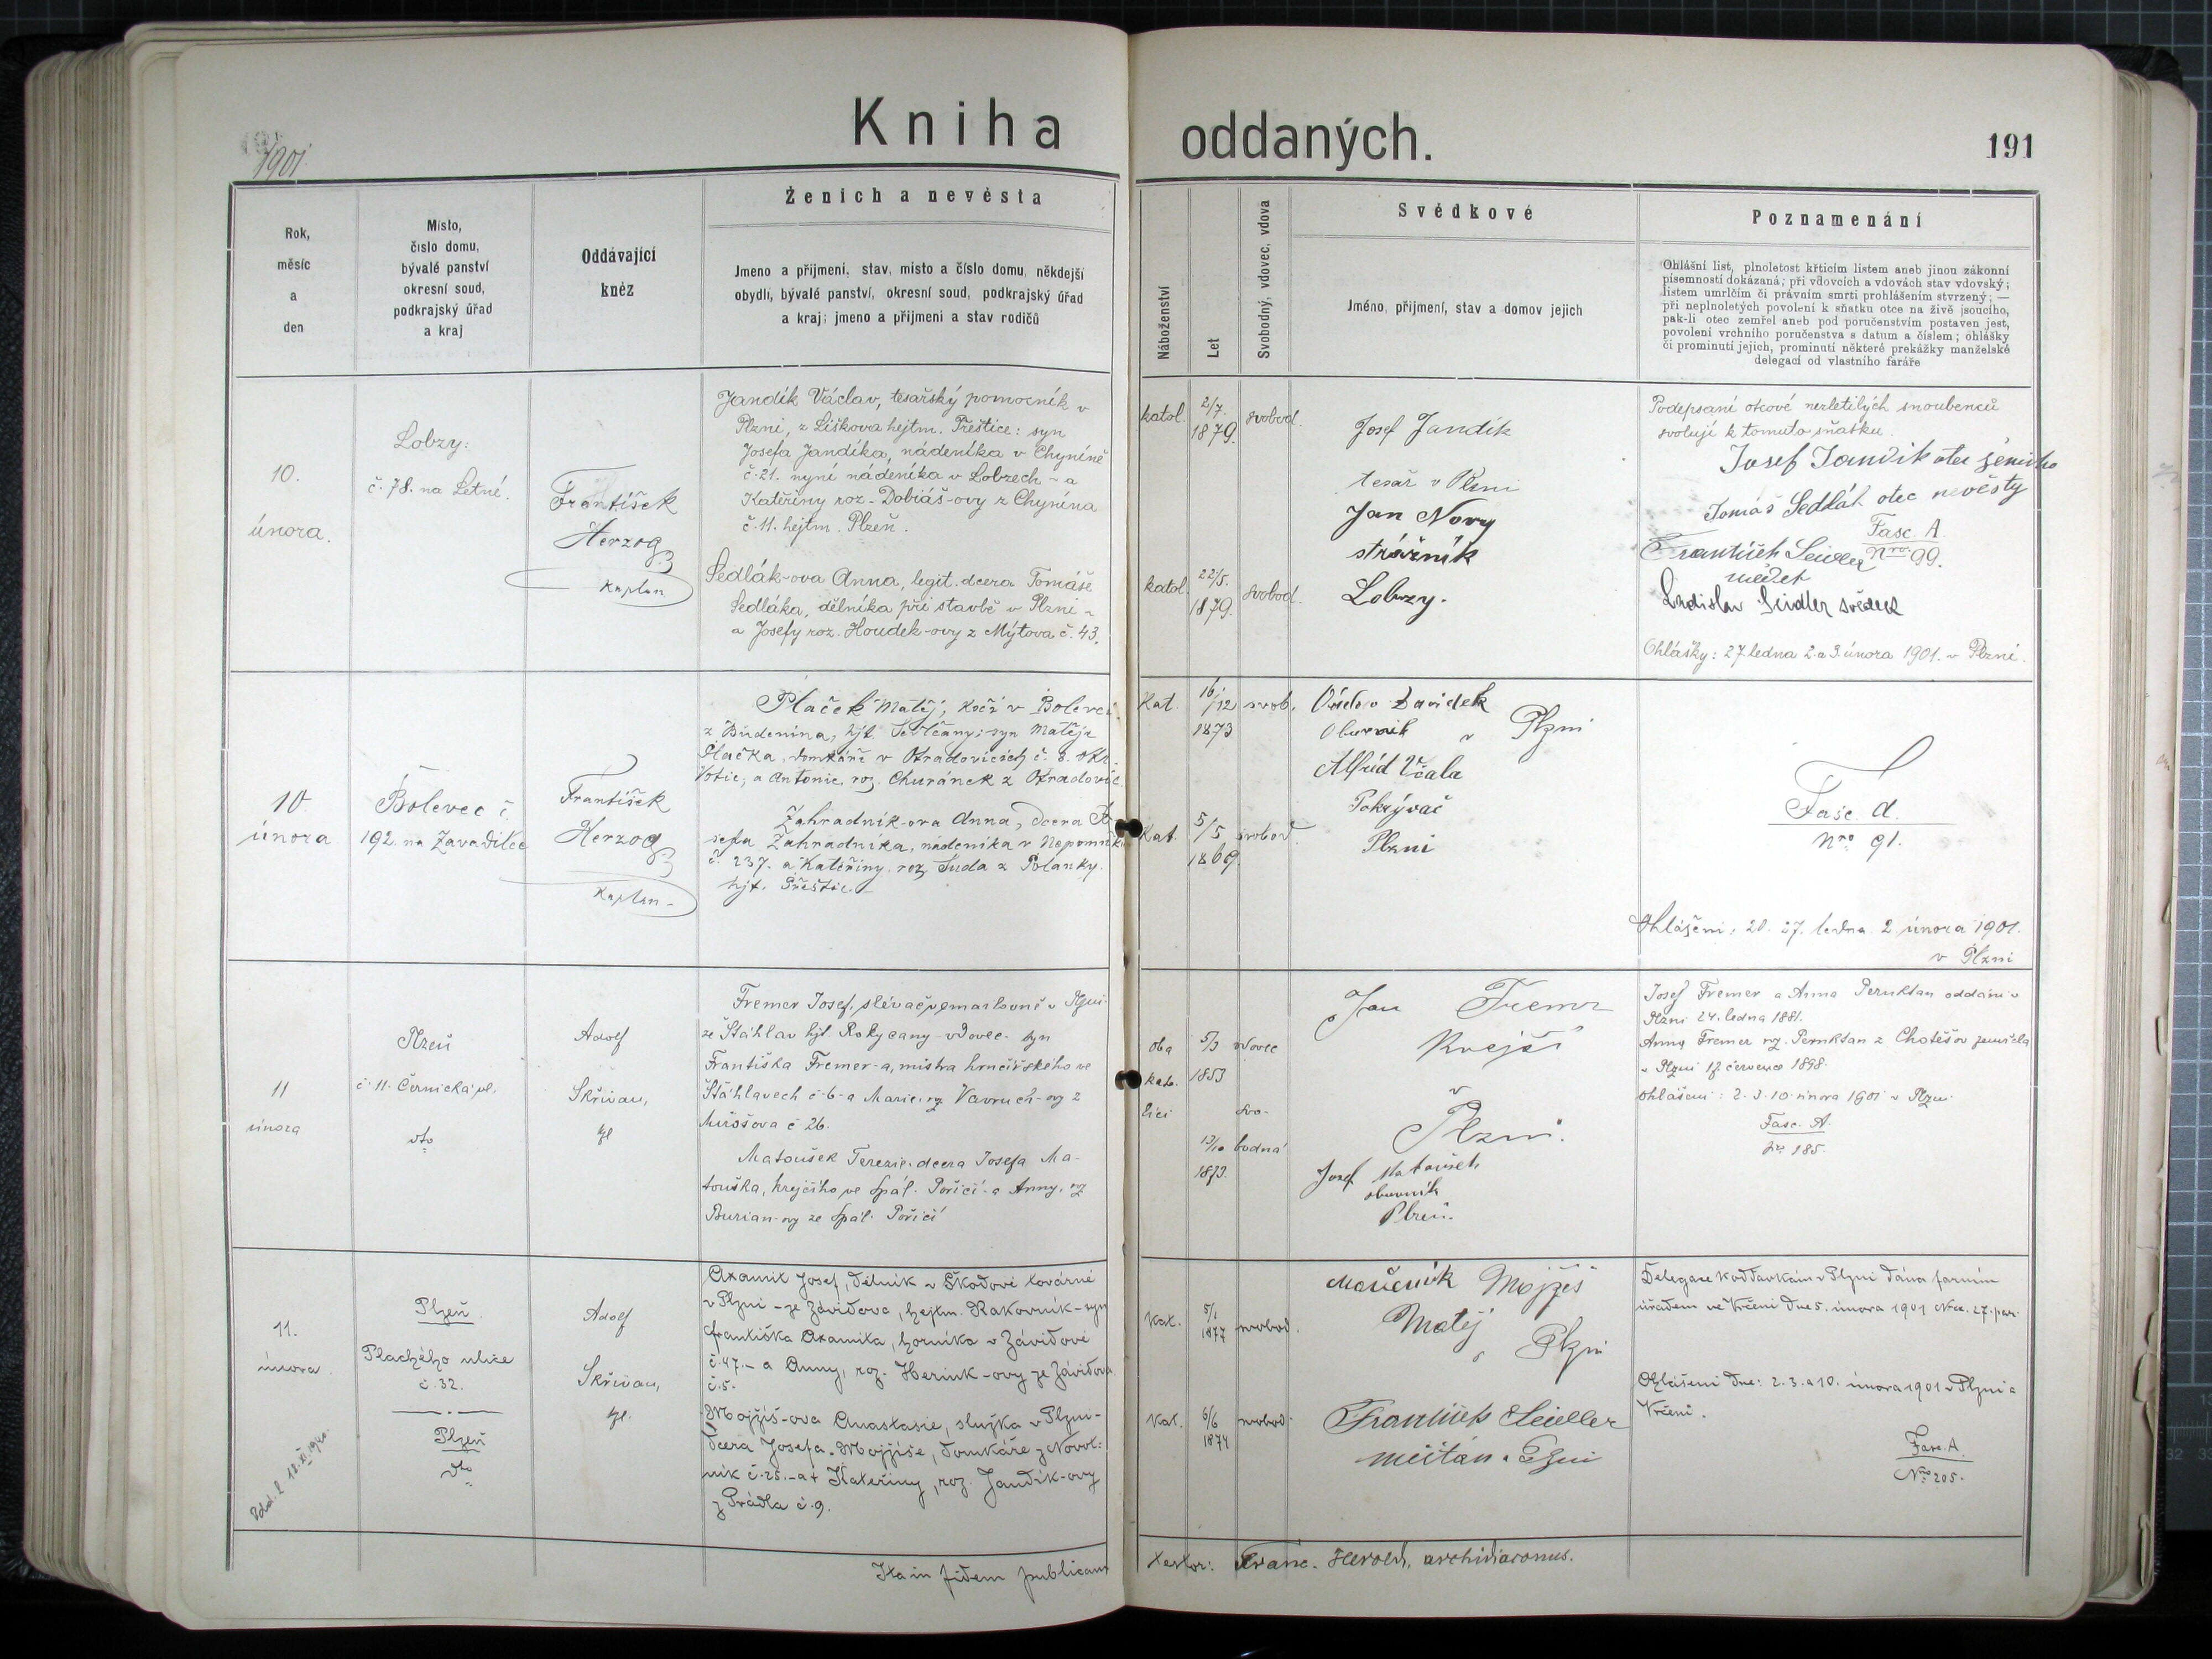 Kniha oddaných.
191
1901.
Rok,
měsíc
a
den
Místo,
číslo domu,
bývalé panství
okresní soud,
podkrajský úřad
a kraj
Oddávající
kněz
Ženich a nevěsta
Jmeno a přijmení, stav, místo a číslo domu, někdejší
obydlí, bývalé panství, okresní soud, podkrajský úřad
a kraj; jmeno a přijmeni a stav rodičů
Náboženství
Let
Svobodný, vdovec, vdova
Svědkové
Jméno, přijmení, stav a domov jejich
Poznamenání
Ohlášní list, plnoletost křticím listem aneb jinou zákonní
písemností dokázaná; při vdovcích a vdovách stav vdovský;
listem umrlčím či právním smrti prohlášením stvrzený; —
při neplnoletých povolení k sňatku otce na živě jsoucího,
pak-li otec zemřel aneb pod poručenstvím postaven jest,
povolení vrchního poručenstva s datum a číslem; ohlášky
či prominutí jejich, prominutí některé prekážky manželské
delegací od vlastního faráře
10.
února.
Lobzy:
č. 78. na Letné.
František
Herzog
kaplan
Jandík Václav, tesařský pomocník v
Plzni, z Liškova hejtm. Přeštice: syn
Josefa Jandíka, nádeníka v Chyníně
č. 21. nyní nádeníka v Lobzech - a
Kateřiny roz. Dobiáš-ovy z Chynína
č. 11. hejtm. Plzeň.
Sedlák-ova Anna, legit. dcera Tomáše
Sedláka, dělníka při stavbě v Plzni -
a Josefy roz. Houdek-ovy z Mýtova č. 43.
katol. 2/7. 1879. svobod.
katol. 22/5. 1879. svobod.
Josef Jandík
tesař v Plzni
Jan Novy
strážník
Lobzy.
Podepsaní otcové nezletilých snoubenců
svolují k tomuto sňatku.
Josef Jandik otec ženicha
Tomáš Sedlák otec nevěsty
Fasc. A.
Nro. 99.
František Seidler
svědek
Ladislav Seidler svědek
Ohlášky: 27. ledna 2. a 3. února 1901. v Plzni.
10.
února
Bolevec č.
192. na Zavadilce
František
Herzog
Kaplan
Plaček Matěj, kočí v Bolevci
z Budenína, hjt. Sedlčany; syn Matěje
Plačka, domkáře v Otradovicích č. 8. okr.
Votic, a Antonie, roz. Churánek z Otradovic.
Zahradník-ova Anna, dcera Jo-
sefa Zahradníka, nádeníka v Nepomuk
č. 237. a Kateřiny, roz. Suda z Polanky.
hjt. Přeštic.
Kat. 16./12 1873 svob.
Kat. 5/5 1869. svobod.
Zavidek
Obuvník v Plzni
Alfréd Včala
Pokrývač
Plzni
Fasc. A.
Nro 91.
Ohlášeni: 20. 27. ledna 2. února 1901.
v Plzni
11
února
Plzeň
č. 11. Černická ul.
dto
Adolf
Skřivan,
kpl
Fremer Josef, slévač v Plzni
ze Šťáhlav hjt. Rokycany - vdovec - syn
Františka Fremer-a, mistra hrnčířského ve
Šťáhlavech č. 6 - a Marie, roz. Vavruch-ovy z
Mirošova č. 26.
Matoušek Terezie, dcera Josefa Ma-
touška, krejčího ve Spál. Poříčí - a Anny, roz.
Burian-ovy ze Spál. Poříčí
oba 5/3 vdovec
kato- 1853
líci svo-
13/10 bodná
1873.
Jan Fremer
Krejčí
v
Plzni.
Josef Matoušek
obuvník
Plzeň.
Josef Fremer a Anna Pernktan oddáni v
Plzni 24. ledna 1881.
Anna Fremer roz. Pernktan z Chotěšov zemřela
v Plzni 17. července 1898.
Ohlášeni: 2. 3. 10. února 1901 v Plzni.
Fasc. A.
Nro 185.
11.
února.
Odd. l. 12. XI. 1940.
Plzeň.
Plachého ulice
č. 32.
Plzeň
dto
Adolf
Skřivan,
kpl.
Axamit Josef, dělník v Škodově továrně
v Plzni - ze Závidova, hejtm. Rakovník - syn
Františka Axamita, horníka v Závidově
č. 47. - a Anny, roz. Herink-ovy ze Závidova
č. 5.
Mojžíš-ova Anastasie, služka v Plzni -
dcera Josefa Mojžíše, domkáře z Novot-
ník č. 25. - a † Kateřiny, roz. Jandík-ovy
z Prádla č. 9.
Kat. 5/1 1877 svobod.
Kat. 6/6 1874 svobod.
Mojžeš
Matěj
v Plzni
František Seidler
měštan v Plzni
Delegace k oddavkám v Plzni dána farním
úřadem ve Vrčeni dne 5. února 1901 Nro. 27. par.
Ohlášeni dne: 2. 3. a 10. února 1901 v Plzni a
Vrčeni.
Fasc. A.
Nro 205.
Ita in fidem publicam testor: Franc. Herold, archidiaconus.